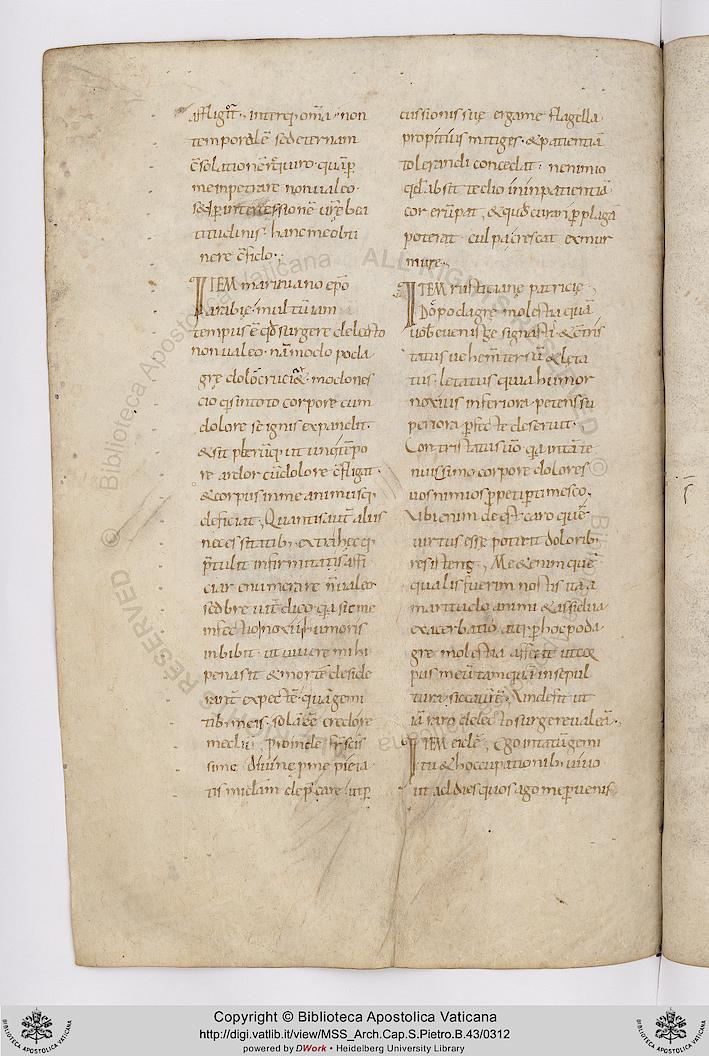 affligit. inter qu oma non
temporale sed eternam
c̄solationē requiro. quāp
me inpetrare non ualeo.
sed p intercessionē urē bea
titudinis. hanc me obti
nere c̄fido.
ITEM mariniano ep̄o
arabie. multum iam
tempus ē qd surgere de lecto
non ualeo. nā modo poda
gre dolor cruciat. modo nes
cio qs in toto corpore cum
dolore se ignis expandit.
& fit plerūq ut uno tēpo
re ardor cū dolore c̄fligat.
& corpus in me animusq
deficiat. Quantis aut aliis
necessitatib. extra hec q
ptuli infirmitatis affi
ciar enumerare n ualeo.
sed breuit dico qa sic me
infectio noxii humoris
inbibit. ut uiuere mihi
pena sit & mortē deside
rant expectē. quā gemi
tib. meis. solā eē credere
mediū. proinde frs scis
sime diuine p me pieta
tis miā depcare. ut p
cussionis sue erga me flagella
propitius mitiget. & patientiā
tolerandi concedat. ne nimio
qd absit tedio in inpatientiā
cor erūpat. & quod curari p plagā
poterat. culpa crescat ex mur
mure.
ITEM rusticiane patricie
De podagre molestia quā
uob euenisse signasti. & c̄tris
tatus uehemter sū & leta
tus. letatus quia humor
noxius inferiora petens su
periora pfecte deseruit.
Contristatus uo qa intā te
nuissimo corpore dolores
uos nimios ppeti ptimesco.
Ubi enim deest caro que
uirtus esse poterit dolorib.
resistens. Me & enim quē
qualis fuerim nostis ita a
maritudo animi & assidua
exacerbatio atq p hoc poda
gre molestia affecit ut cor
pus meū tamquā in sepul
tura siccatū ē. Unde fit ut
iā raro de lecto surgere ualeā.
ITEM eidē. Ego in tatū gemi
tu & hoccupationib. uiuo
ut ad dies quos ago me puenis
Copyright © Biblioteca Apostolica Vaticana
http://digi.vatlib.it/view/MSS_Arch.Cap.S.Pietro.B.43/0312
powered by DWork • Heidelberg University Library